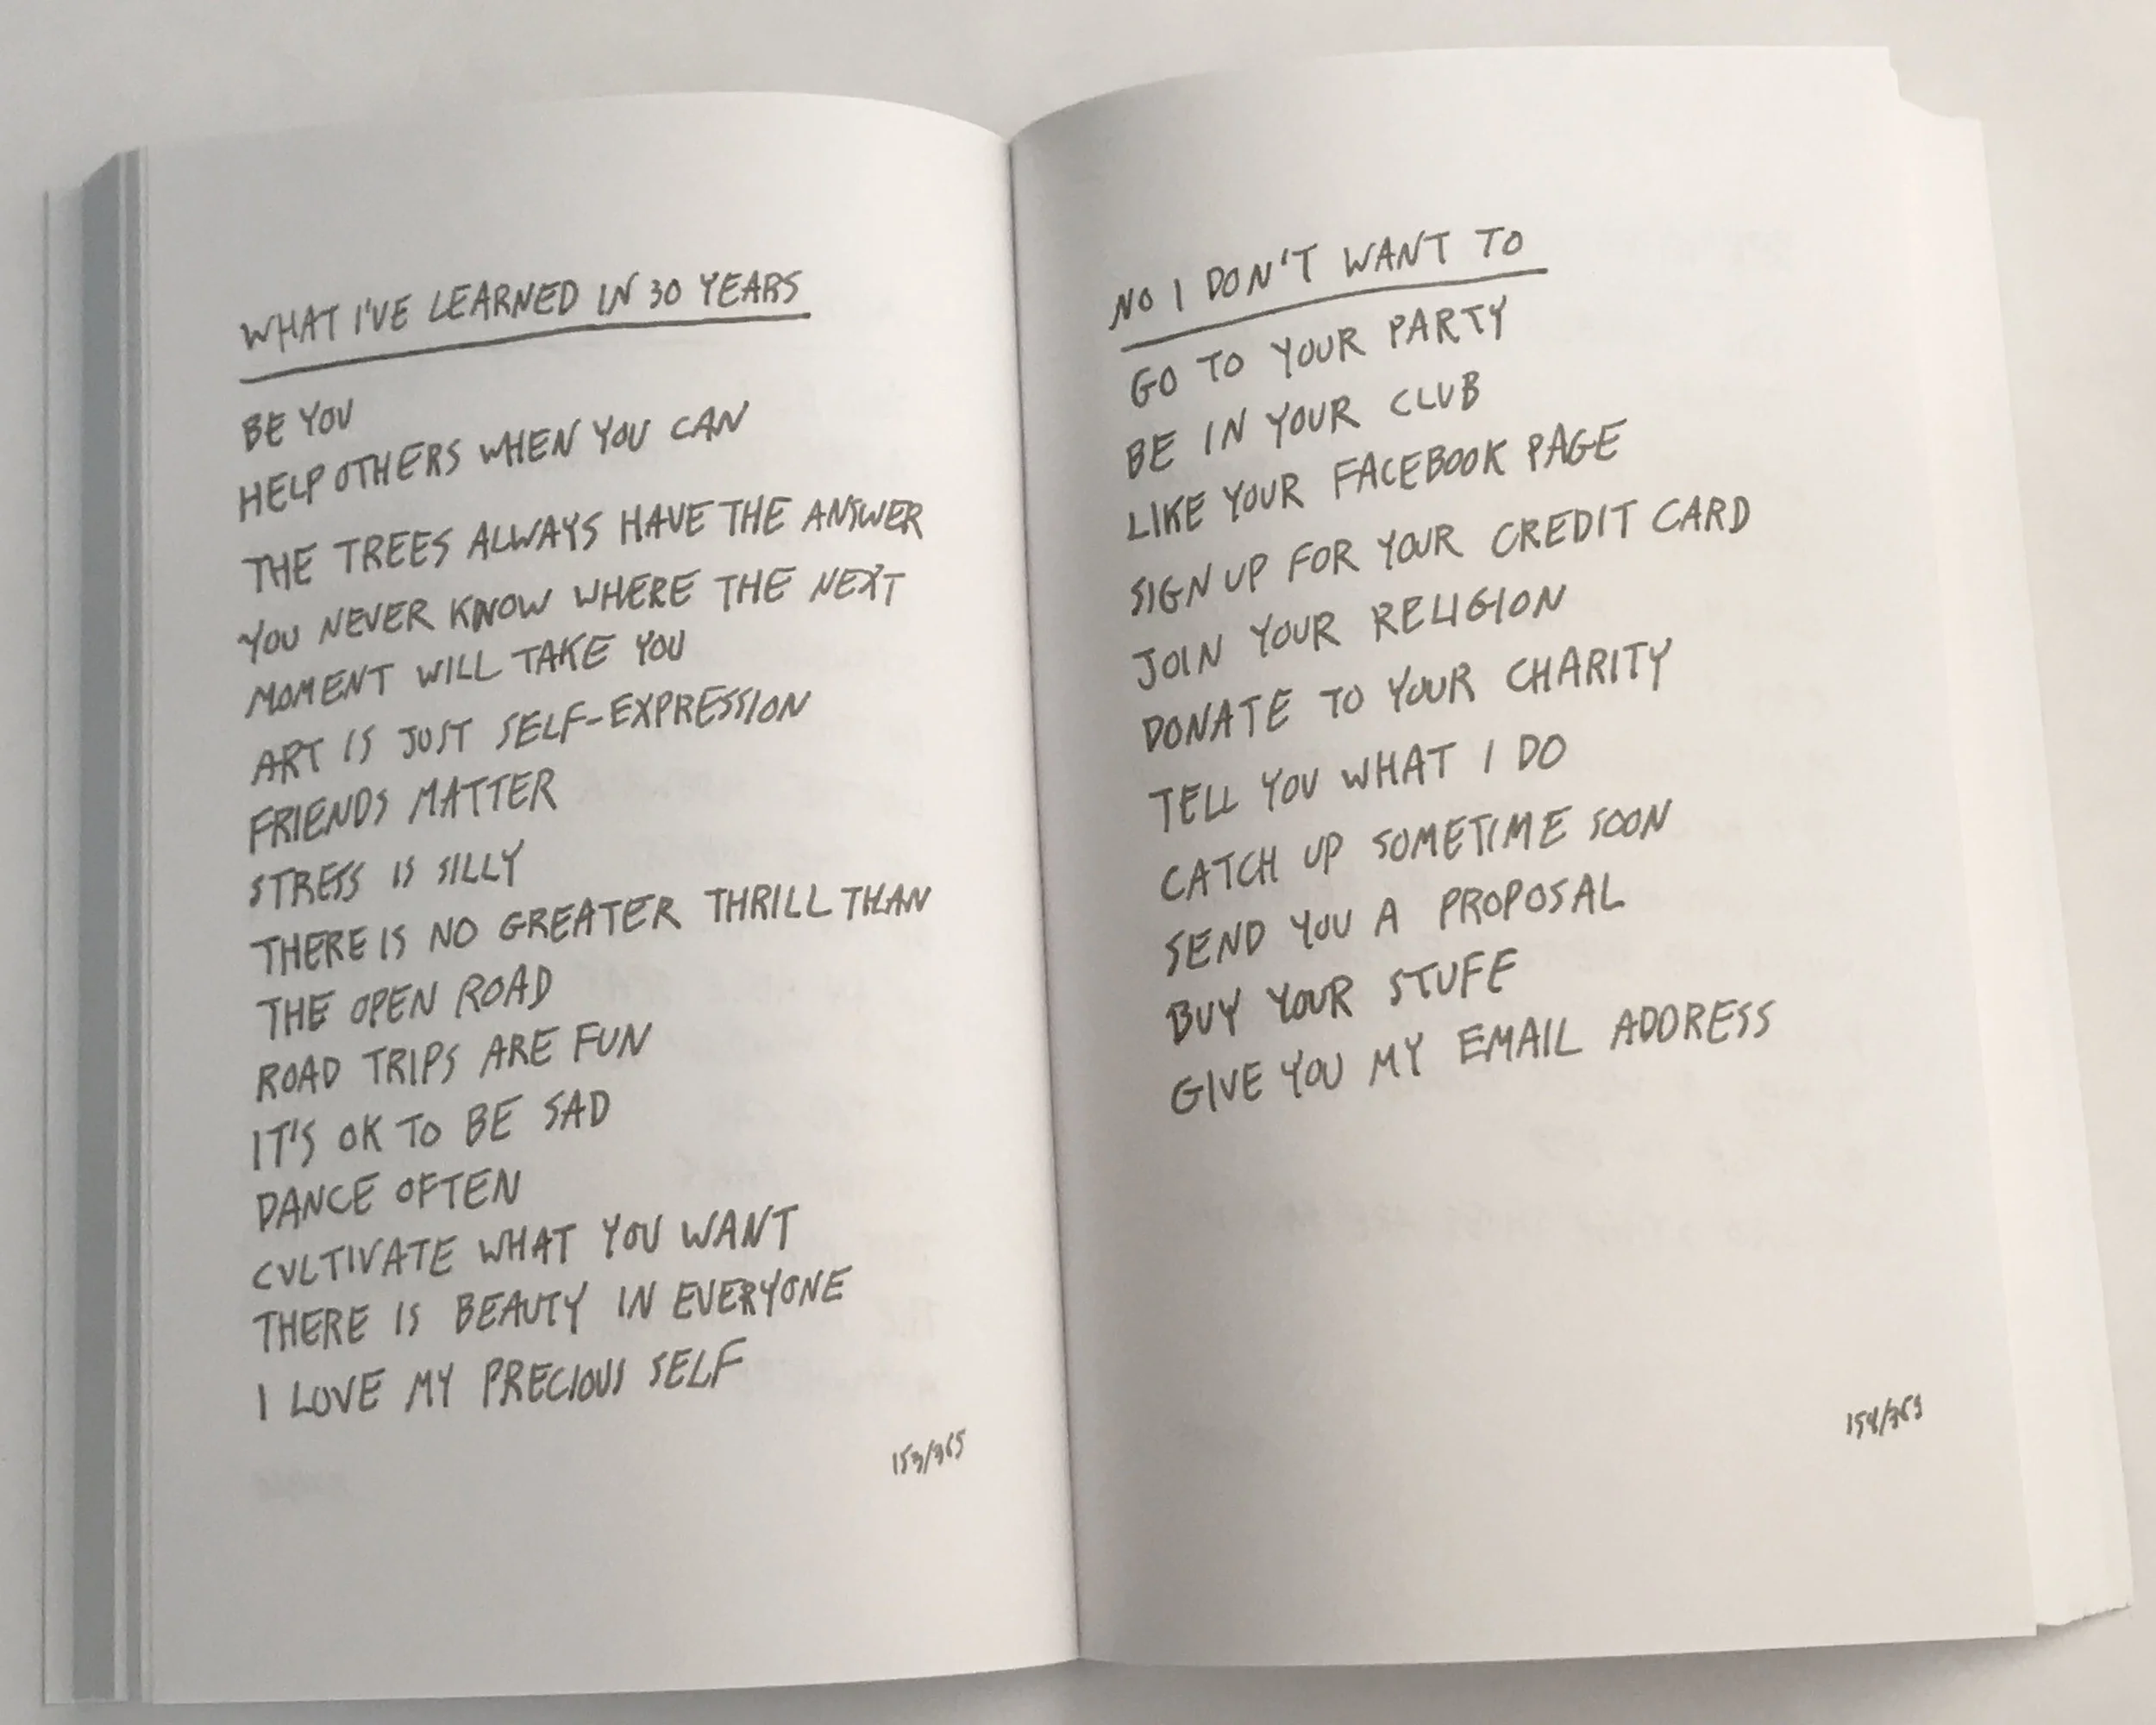 WHAT I'VE LEARNED IN 30 YEARS
BE YOU
HELP OTHERS WHEN YOU CAN
THE TREES ALWAYS HAVE THE ANSWER
YOU NEVER KNOW WHERE THE NEXT
MOMENT WILL TAKE YOU
ART IS JUST SELF-EXPRESSION
FRIENDS MATTER
STRESS IS SILLY
THERE IS NO GREATER THRILL THAN
THE OPEN ROAD
ROAD TRIPS ARE FUN
IT'S OK TO BE SAD
DANCE OFTEN
CULTIVATE WHAT YOU WANT
THERE IS BEAUTY IN EVERYONE
I LOVE MY PRECIOUS SELF
153/365
NO I DON'T WANT TO
GO TO YOUR PARTY
BE IN YOUR CLUB
LIKE YOUR FACEBOOK PAGE
SIGN UP FOR YOUR CREDIT CARD
JOIN YOUR RELIGION
DONATE TO YOUR CHARITY
TELL YOU WHAT I DO
CATCH UP SOMETIME SOON
SEND YOU A PROPOSAL
BUY YOUR STUFF
GIVE YOU MY EMAIL ADDRESS
154/365